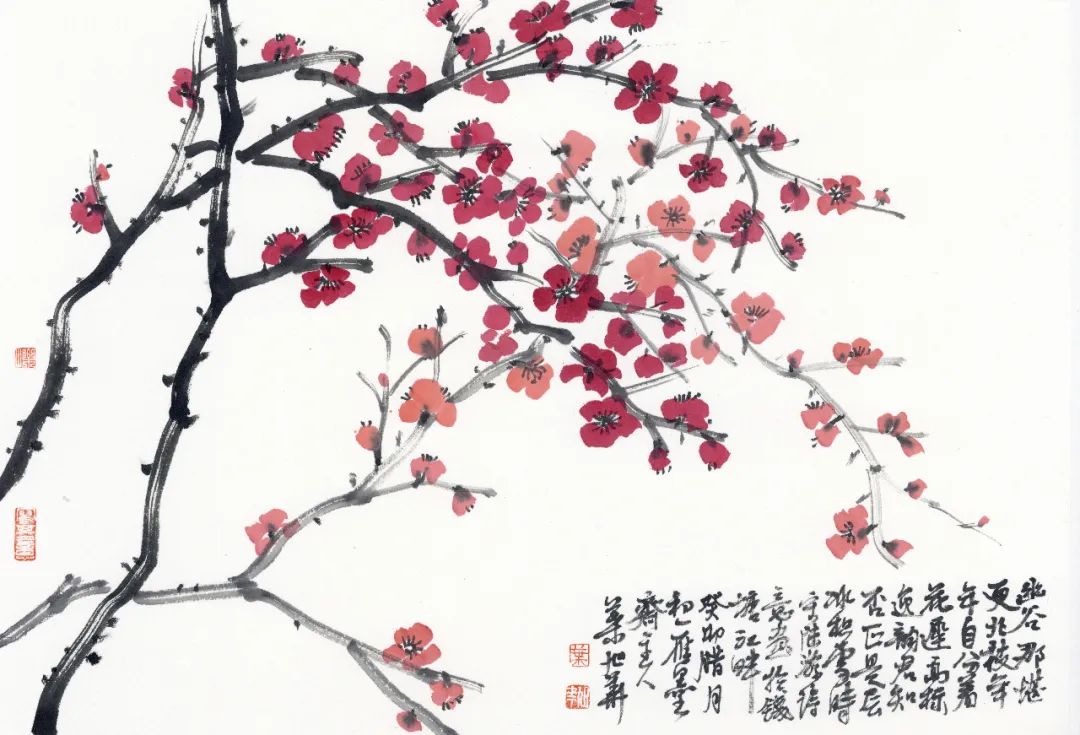 幽谷那堪
更北枝年
年自分着
花遲高标
逸韻君知
否正是层
冰積雪時
写陸游詩
意畫於錢
塘江畔
癸卯腊月
初雁墨
齋主人
葉
葉